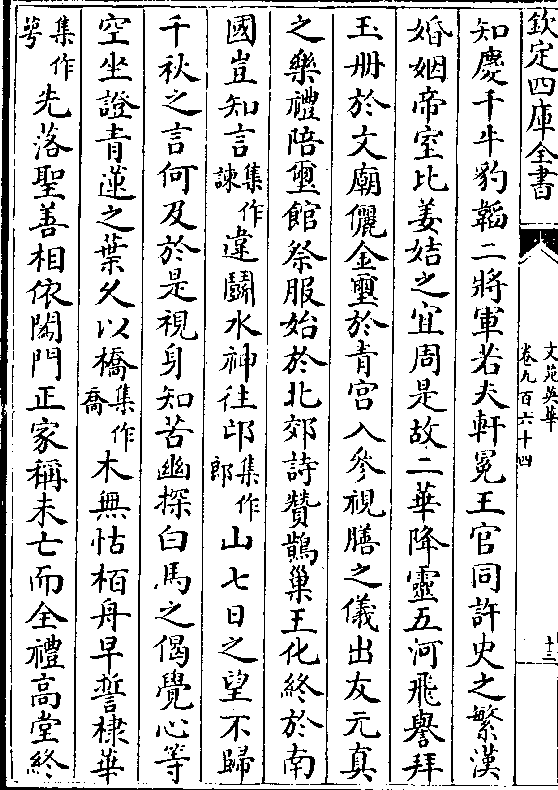 欽定四庫全書
文苑英華
卷九百六十四
十三
知慶千牛豹韜二將軍若夫軒冕王官同許史之繁漢
婚姻帝室比姜姞之宜周是故二華降靈五河飛譽拜
玉册於文廟儷金璽於青宮入參視膳之儀出友元真
之樂禮陪璽館祭服始於北郊詩贊鵲巢王化終於南
國豈知言集作諫違鬭水神往邙集作郎山七日之望不歸
千秋之言何及於是視身知苦幽探白馬之偈覺心等
空坐證青蓮之葉久以橋集作喬木無怙栢舟早誓棣華
集作萼先落聖善相依闔門正家稱未亡而全禮高堂終